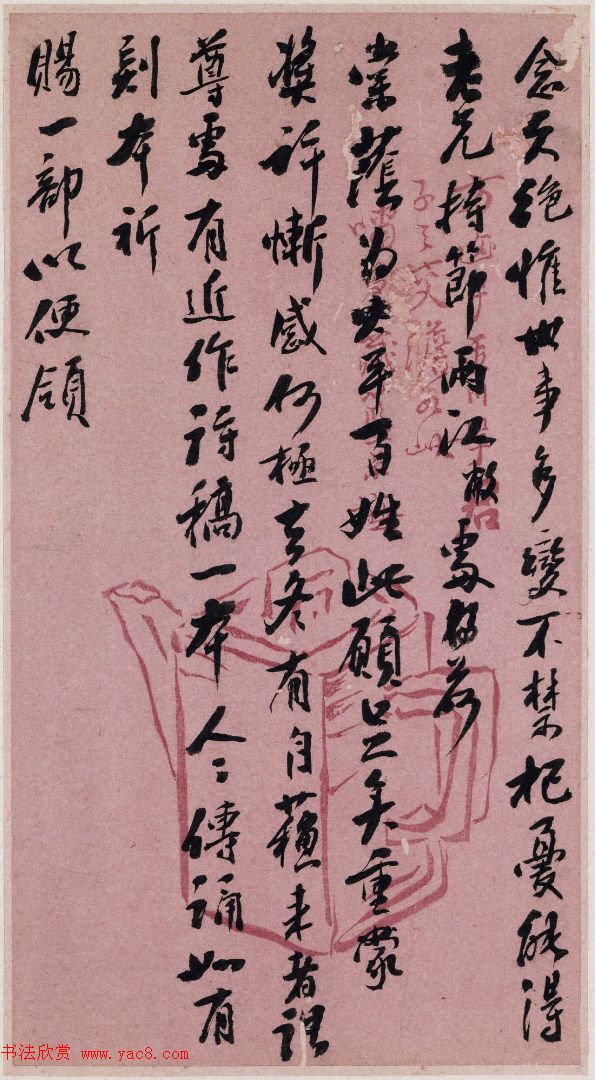 念久絶惟世事多變不禁杞憂能得
老兄持節兩江敝處仰荷
棠蔭為太平百姓此願足矣重蒙
獎許慚感何極去冬有自蘇來者謂
尊處有近作詩稿一本人〻傳誦如有
刻本祈
賜一部以便領
书法欣赏 www.yac8.com